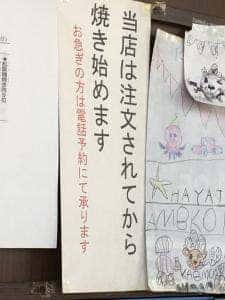 当店は注文されてから
焼き始めます
お急ぎの方は電話予約にて承ります
HAYAT